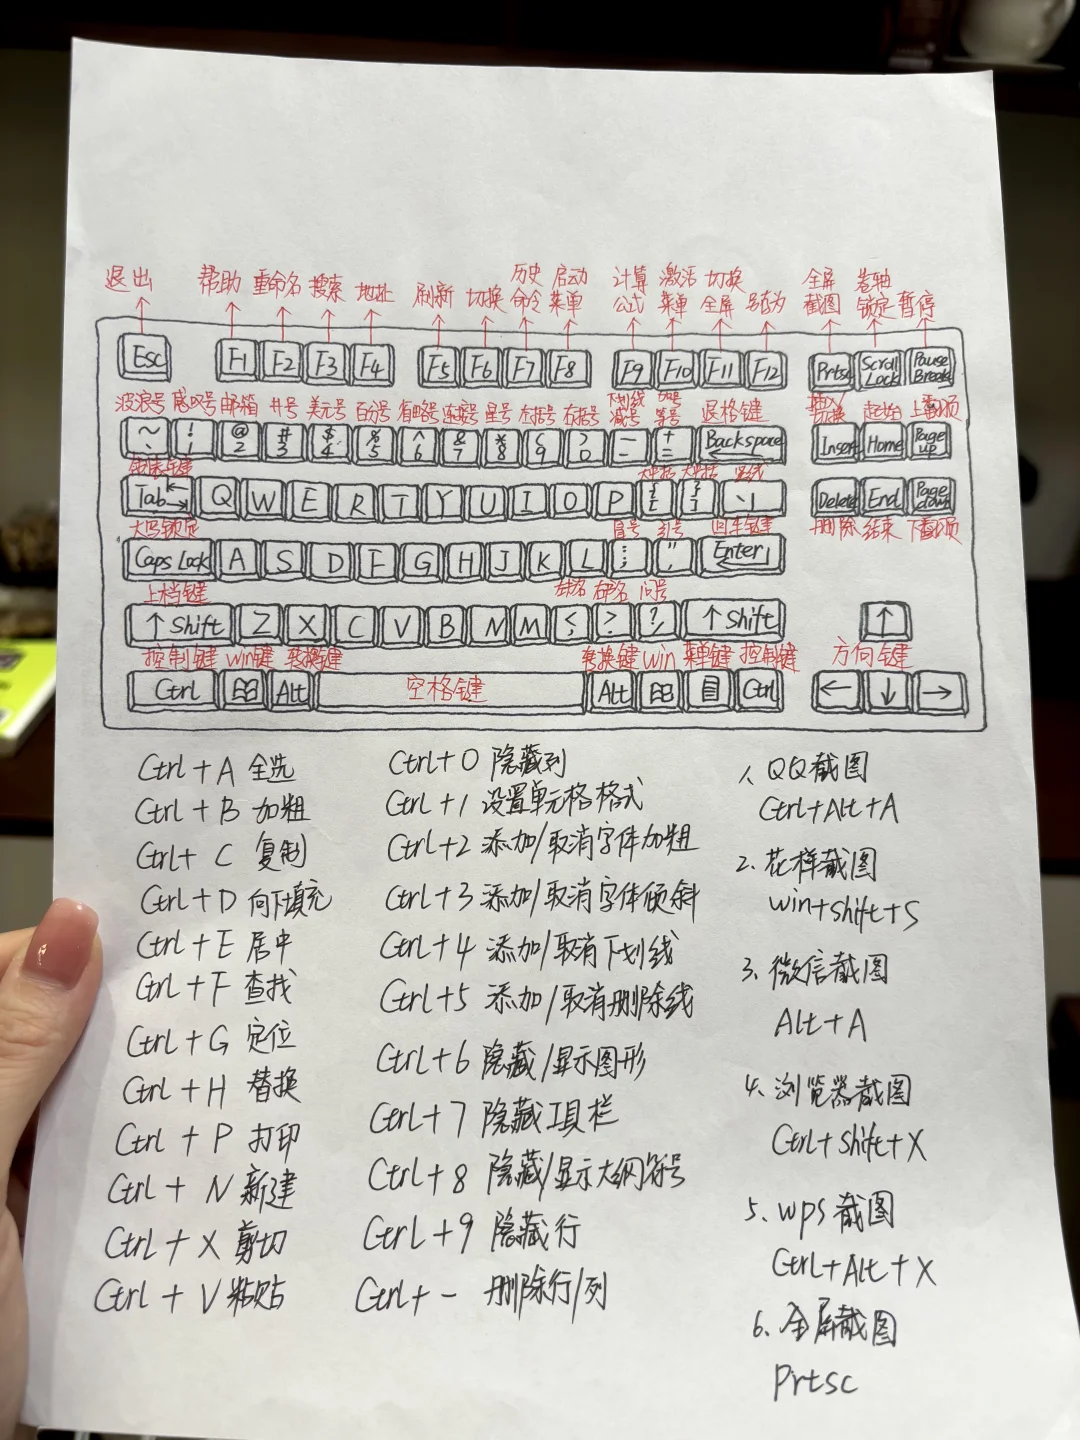 退出 帮助 重命名 搜索 地址 刷新 切换 历史命令 启动菜单 计算公式 激活菜单 切换全屏 另存为 全屏截图 卷轴锁定 暂停
Esc F1 F2 F3 F4 F5 F6 F7 F8 F9 F10 F11 F12 Prtsc Scroll Lock Pause Break
波浪号 感叹号 邮箱 井号 美元号 百分号 省略号 连接号 星号 左括号 右括号 下划线 减号 加号 等号 退格键 插入 切换 起始 上翻页
~ ` ! 1 @ 2 # 3 $ 4 % 5 ^ 6 & 7 * 8 ( 9 ) 0 — - + = Backspace Insert Home Page up
制表键 大中括 大中括 竖线
Tab Q W E R T Y U I O P { [ } ] \ | Delete End Page down
大写锁定 冒号 引号 回车键 删除 结束 下翻页
Caps Lock A S D F G H J K L : ; " , Enter
上档键 左书名 右书名 问号
↑ Shift Z X C V B N M < , > . ? / ↑ Shift ↑
控制键 win键 转换键 转换键 win 菜单键 控制键 方向键
Ctrl Alt 空格键 Alt Ctrl ← ↓ →
Ctrl + A 全选
Ctrl + B 加粗
Ctrl + C 复制
Ctrl + D 向下填充
Ctrl + E 居中
Ctrl + F 查找
Ctrl + G 定位
Ctrl + H 替换
Ctrl + P 打印
Ctrl + N 新建
Ctrl + X 剪切
Ctrl + V 粘贴
Ctrl + 0 隐藏列
Ctrl + 1 设置单元格格式
Ctrl + 2 添加/取消字体加粗
Ctrl + 3 添加/取消字体倾斜
Ctrl + 4 添加/取消下划线
Ctrl + 5 添加/取消删除线
Ctrl + 6 隐藏/显示图形
Ctrl + 7 隐藏工具栏
Ctrl + 8 隐藏/显示大纲符号
Ctrl + 9 隐藏行
Ctrl + - 删除行/列
1、QQ截图
Ctrl + Alt + A
2、花样截图
win + shift + S
3、微信截图
Alt + A
4、浏览器截图
Ctrl + shift + X
5、wps 截图
Ctrl + Alt + X
6、全屏截图
Prtsc